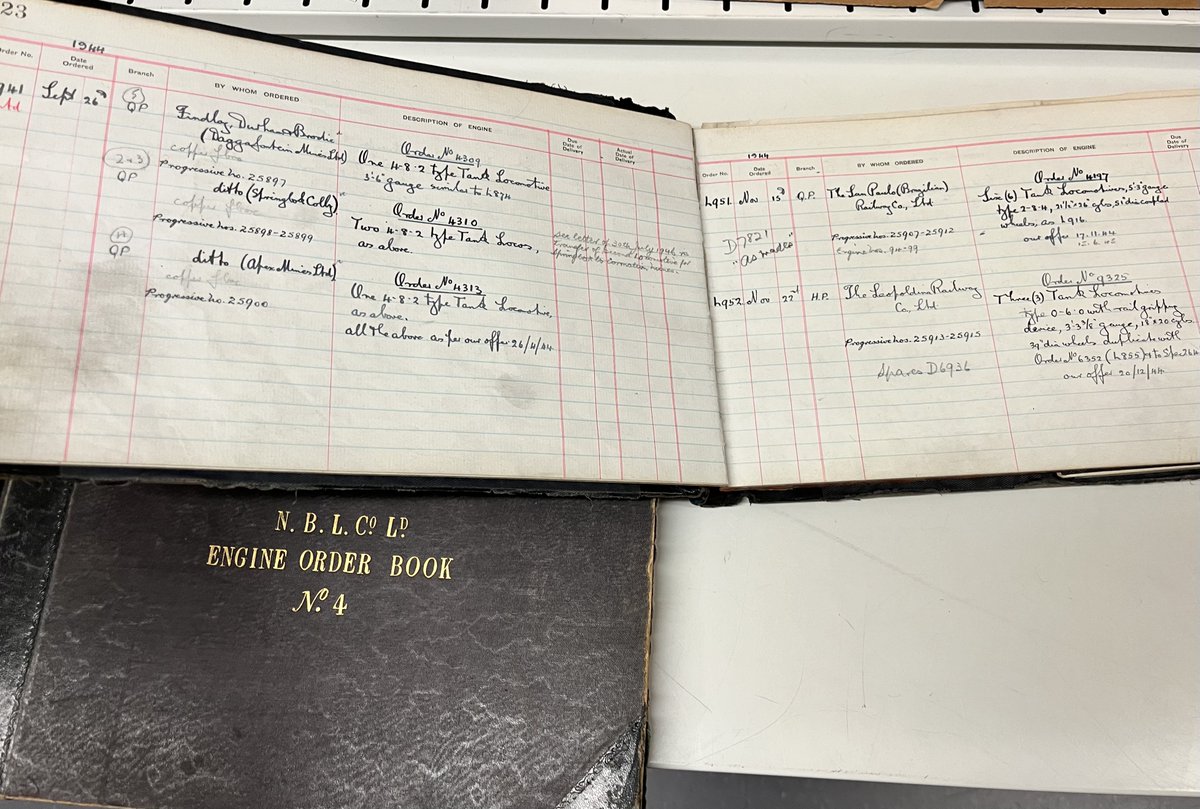 23
1944
Order No.
Date Ordered
Branch
BY WHOM ORDERED
DESCRIPTION OF ENGINE
Due Date of Delivery
Actual Date of Delivery
941
Sept 26th
5
QP
Findlay, Durham & Brodie
(Daggafontein Mines Ltd)
Progressive no. 25897
Order No 4309
One 4-8-2 type Tank Locomotive
3'6" gauge similar to L874
2+3
QP
ditto (Springbok Colly)
Progressive nos. 25898-25899
Order No 4310
Two 4-8-2 type Tank Locos,
as above.
see letter of 20th July 1946 re
transfer of second locomotive for
Springbok to
4
QP
ditto (Apex Mines Ltd)
Progressive no. 25900
Order No 4313
One 4-8-2 type Tank Locomotive,
as above.
all the above as per our offer 26/4/44
1944
Order No.
Date Ordered
Branch
BY WHOM ORDERED
DESCRIPTION OF ENGINE
Due Date of Delivery
L951 Nov 15th Q.P.
The San Paulo (Brazilian)
Railway Co., Ltd
Progressive nos. 25907-25912
Engine nos. 94-99
D7821
"as readies"
Order No 4197
Six (6) Tank Locomotives, 5'3" gauge
type 2-8-4, 21½"x26" cyls, 5' dia coupled
wheels, as L916.
our offer 17.11.44
L952 Nov 22nd H.P.
The Leopoldina Railway
Co., Ltd
Progressive nos. 25913-25915
Spares D6936
Order No 9325
Three (3) Tank Locomotives
type 0-6-0 with rail gripping
device, 3'3⅜" gauge, 18"x20" cyls
39" dia wheels duplicate with
Order No 6352 (L855) & to Spec
our offer 20/12/44
N. B. L. Co Ld
ENGINE ORDER BOOK
No. 4